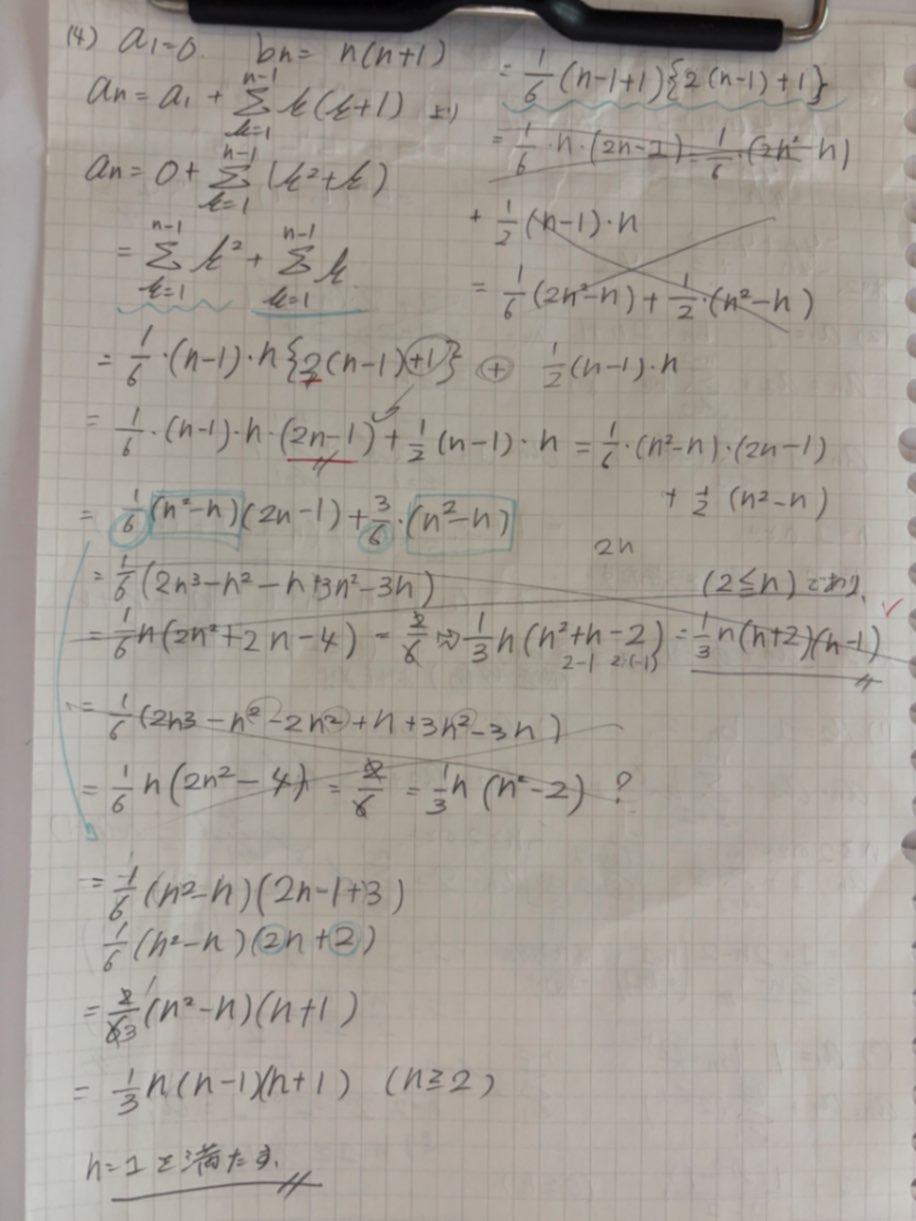 (4) a₁=0. bn= n(n+1)
an = a₁ + Σ[k=1, n-1] k(k+1) より
an = 0 + Σ[k=1, n-1] (k²+k)
= Σ[k=1, n-1] k² + Σ[k=1, n-1] k
= 1/6 (n-1+1){2(n-1)+1}
= 1/6 · n · (2n-1) = 1/6 · (2n²-n)
+ 1/2 (n-1)·n
= 1/6 (2n²-n) + 1/2 · (n²-n)
= 1/6 · (n-1)·n{2(n-1)+1} + 1/2 (n-1)·n
= 1/6 · (n-1)·n·(2n-1) + 1/2 (n-1)·n = 1/6 · (n²-n)·(2n-1)
+ 1/2 (n²-n)
= 1/6 (n²-n)(2n-1) + 3/6 · (n²-n)
2n
= 1/6 (2n³-n²-n+3n²-3n) (2≦n)
= 1/6 n(2n²+2n-4) = 2/6 ⇒ 1/3 n(n²+n-2) = 1/3 n(n+2)(n-1)
2-1 2·(-1)
= 1/6 (2n3 - n² - 2n² + n + 3n² - 3n)
= 1/6 n(2n²-4) = 2/6 = 1/3 n (n²-2) ?
= 1/6 (n²-n)(2n-1+3)
1/6 (n²-n)(2n+2)
= 2/6 1 3 (n²-n)(n+1)
= 1/3 n(n-1)(n+1) (n≧2)
n=1を満たす.